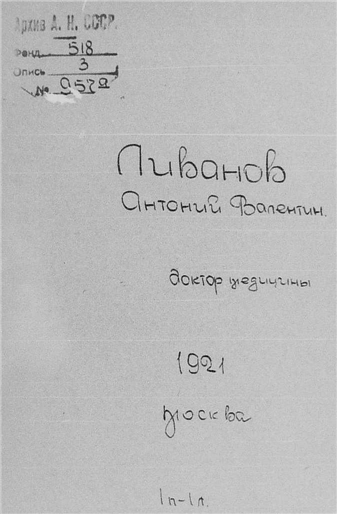 Архив А. Н. СССР.
Фонд 518
Опись 3
№ 957а
Ливанов
Антоний Валентин.
доктор медицины
1921
Москва
1п-1л.